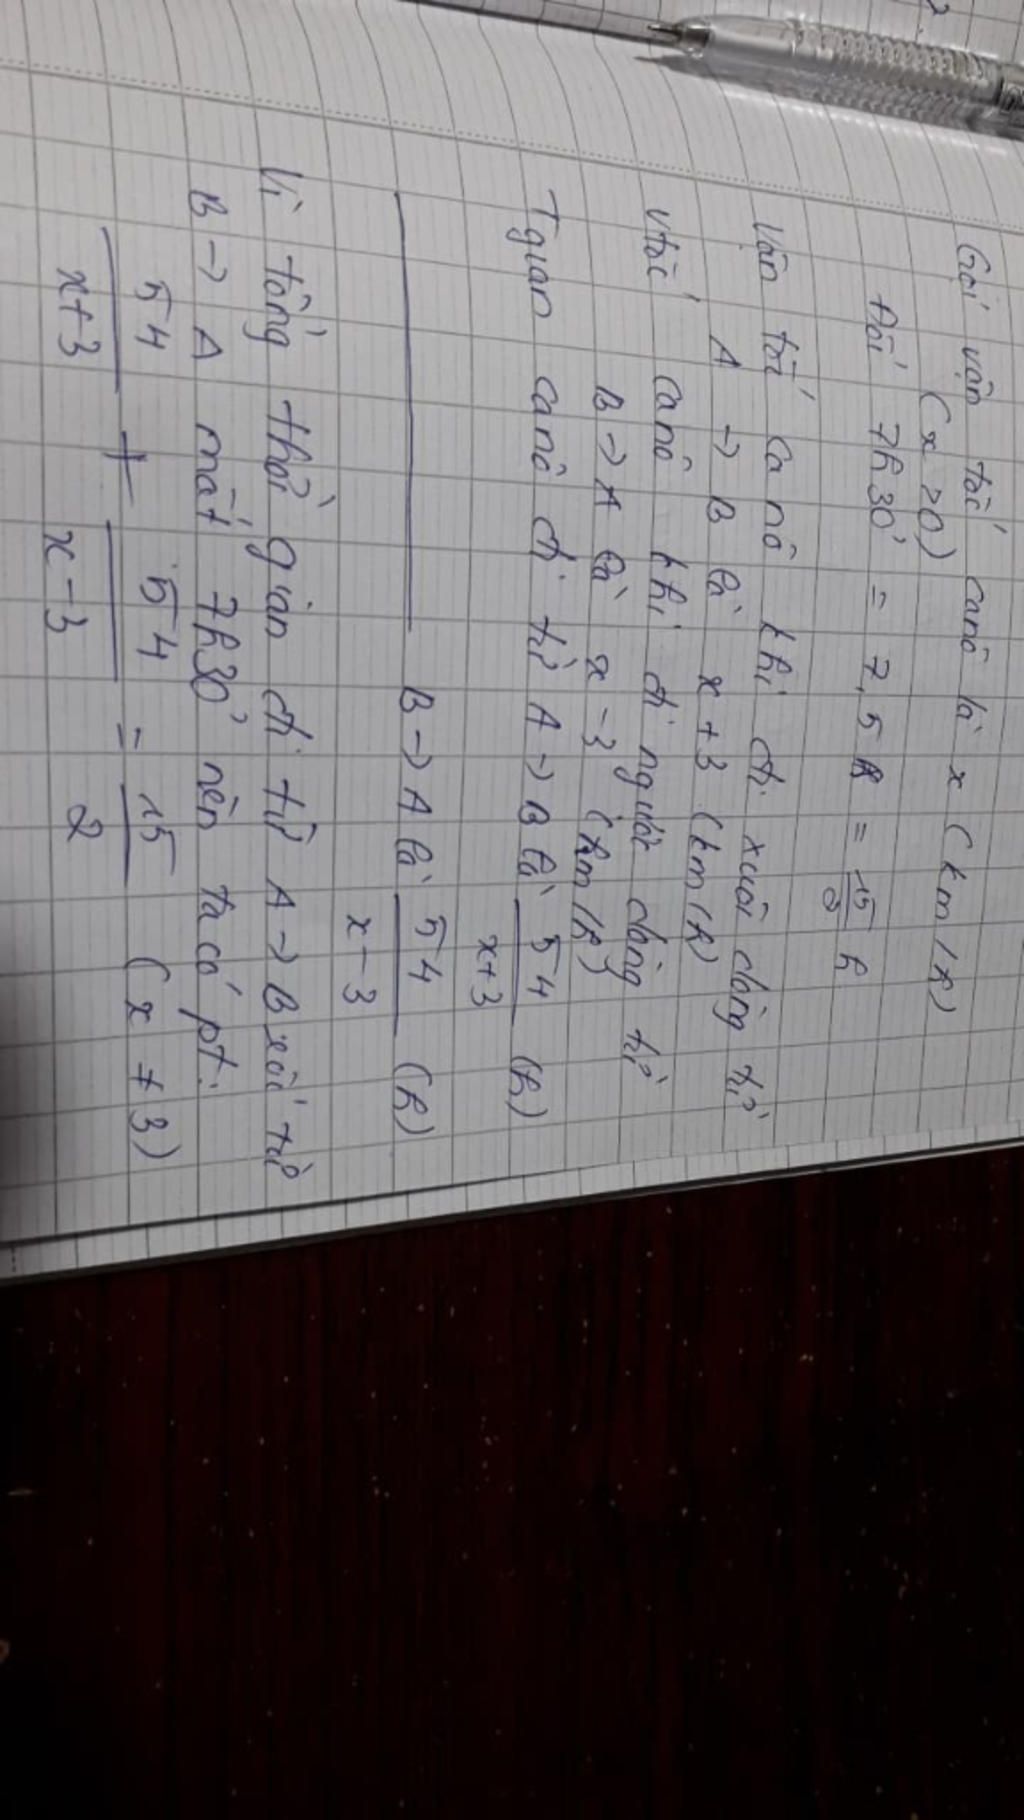 Gọi vận tốc canô là x (km/h)
(x > 0)
Đổi 7h30' = 7,5 h = 15/2 h
Vận tốc canô khi đi xuôi dòng từ
A → B là x + 3 (km/h)
Vtốc canô khi đi ngược dòng từ
B → A là x - 3 (km/h)
Tgian canô đi từ A → B là 54/(x+3) (h)
B → A là 54/(x-3) (h)
Vì tổng thời gian đi từ A → B rồi từ
B → A mất 7h30' nên ta có pt:
54/(x+3) + 54/(x-3) = 15/2 (x ≠ 3)